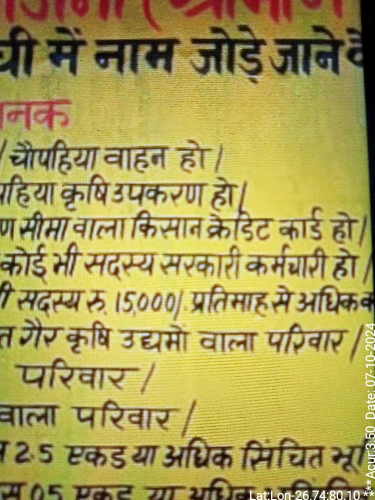 में नाम जोड़े जाने
नक
/ चौपहिया वाहन हो /
पहिया कृषि उपकरण हो /
ण सीमा वाला किसान क्रेडिट कार्ड हो /
कोई भी सदस्य सरकारी कर्मचारी हो /
ी सदस्य रु. 15,000/ प्रतिमाह से अधिक क
त गैर कृषि उद्यमों वाला परिवार /
परिवार /
वाला परिवार /
2.5 एकड या अधिक सिंचित भू
05 एकड या
Lat:Lon-26.74:80.10 *** Acur:3.50 Date: 07-10-2024